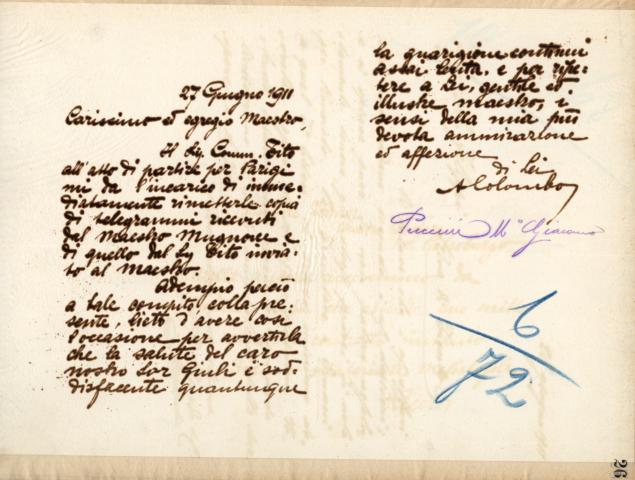 27 Giugno 1911
Carissimo ed egregio Maestro,
Il Sig. Comm. Tito
all'atto di partire per Parigi
mi dà l'incarico di imme-
diatamente rimetterle copia
di telegrammi ricevuti
dal Maestro Mugnone e
di quello dal Sig Tito invia-
to al Maestro.
Adempio perciò
a tale compito colla pre-
sente, lieto d'avere così
l'occasione per avvertirla
che la salute del caro
nostro Sor Giuli è sod-
disfacente quantunque
la guarigione continui
assai lenta, e per ripe-
tere a Lei, gentile ed
illustre maestro, i
sensi della mia più
devota ammirazione
ed affezione
di Lei
AColombo
Puccini M° Giacomo
6
72
26